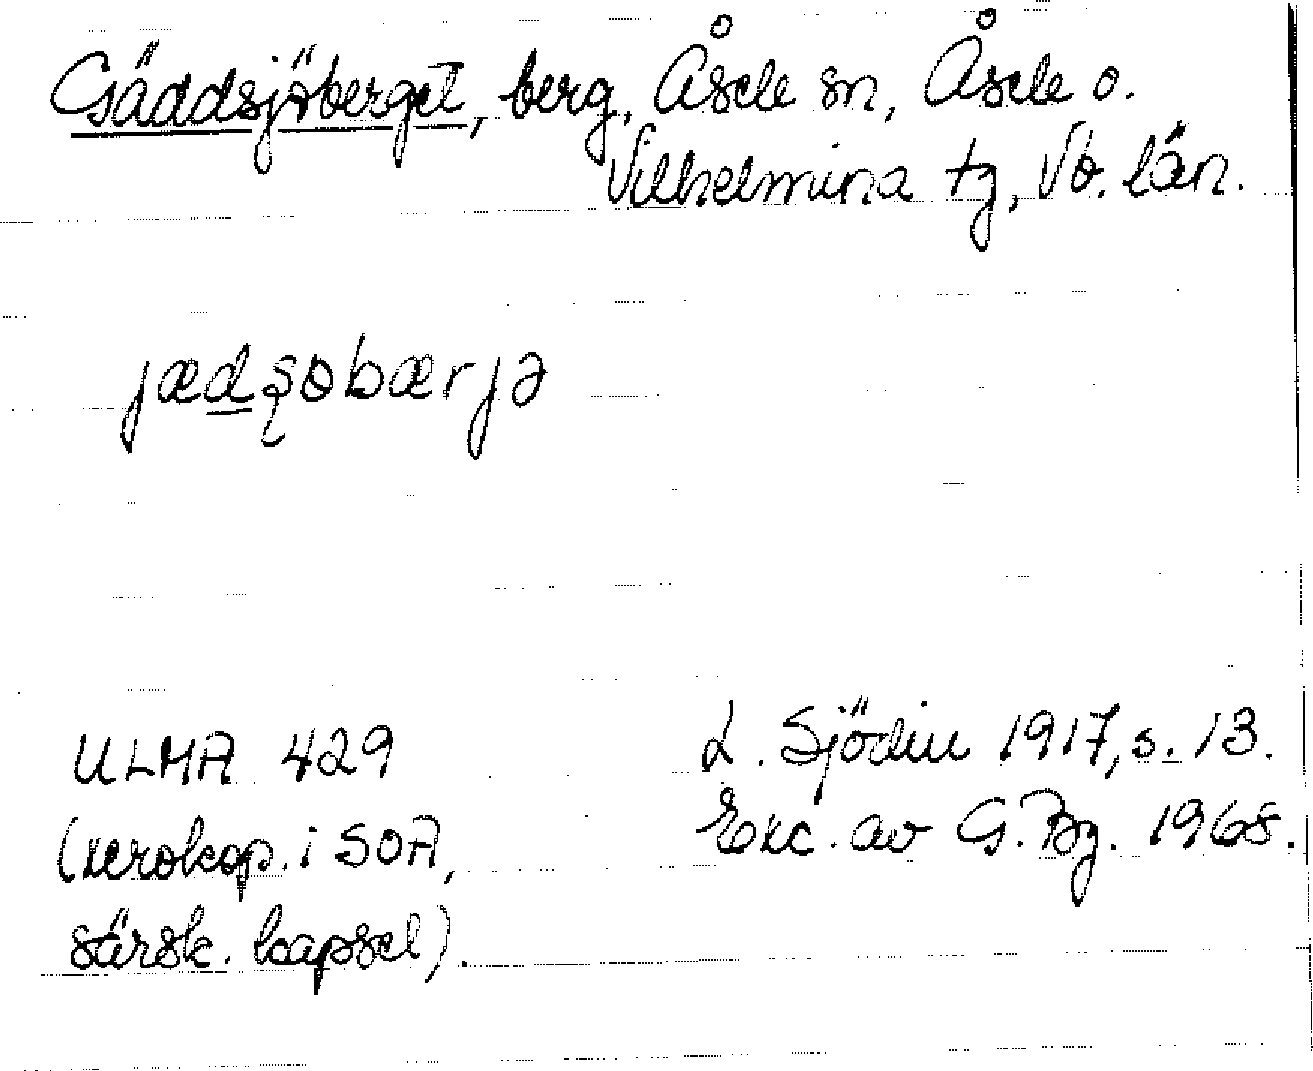 Gäddsjöberget, berg, Åsele sn, Åsele o.
Vilhelmina tg, Vb. län.
jædʂɵbærjə
ULMA 429
(xerokop. i SOA,
särsk. kapsel).
L. Sjödin 1917, s. 13.
Exc. av G. Bg. 1968.